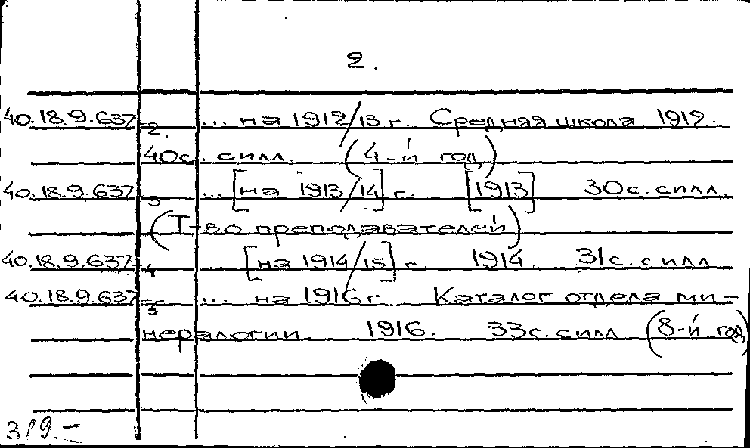 2.
40.18.9.637-2. ... на 1912/13 г. Средняя школа 1912.
40с. силл. (4-й год)
40.18.9.637-3 ... [на 1913/14] г. [1913] 30с. силл.
(Т-во преподавателей)
40.18.9.637-4 ... [на 1914/15] г. 1914. 31с. силл.
40.18.9.637- ... на 1916 г. Каталог отдела ми-
нералогии. 1916. 33с. силл. (8-й год)